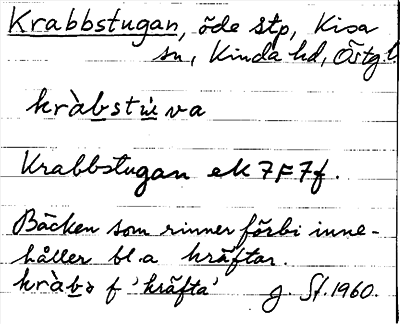 Krabbstugan, öde stp, Kisa
sn, Kinda hd, Östg l.
kràbstù va
Krabbstugan ek 7F7f.
Bäcken som rinner förbi inne-
håller bl.a kräftar.
kràba f 'kräfta' g. St. 1960.